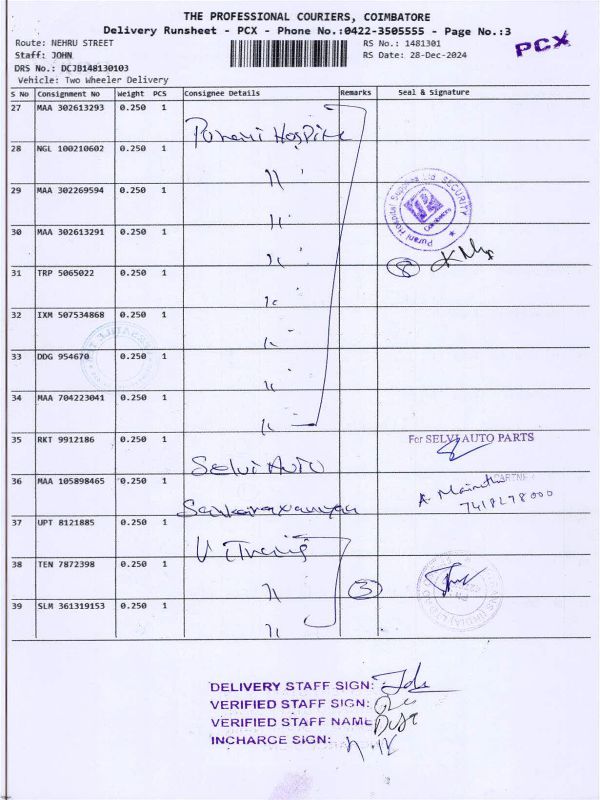 THE PROFESSIONAL COURIERS, COIMBATORE
Delivery Runsheet - PCX - Phone No.:0422-3505555 - Page No.:3
PCX
Route: NEHRU STREET
RS No.: 1481301
Staff: JOHN
RS Date: 28-Dec-2024
DRS No.: DCJB148130103
Vehicle: Two Wheeler Delivery
S No Consignment No Weight PCS Consignee Details Remarks Seal & Signature
27 MAA 302613293 0.250 1
Purani Hospital
28 NGL 100210602 0.250 1
"
29 MAA 302269594 0.250 1
"
Purani Hospital Supplies Ltd. SECURITY
30 MAA 302613291 0.250 1
"
8
31 TRP 5065022 0.250 1
"
32 IXM 507534868 0.250 1
"
33 DDG 954670 0.250 1
"
34 MAA 704223041 0.250 1
"
35 RKT 9912186 0.250 1
For SELVI AUTO PARTS
Selvi Auto
36 MAA 105898465 0.250 1
PARTNER
7418278000
37 UPT 8121885 0.250 1
38 TEN 7872398 0.250 1
"
3
39 SLM 361319153 0.250 1
"
DELIVERY STAFF SIGN:
VERIFIED STAFF SIGN:
VERIFIED STAFF NAME
INCHARGE SIGN: